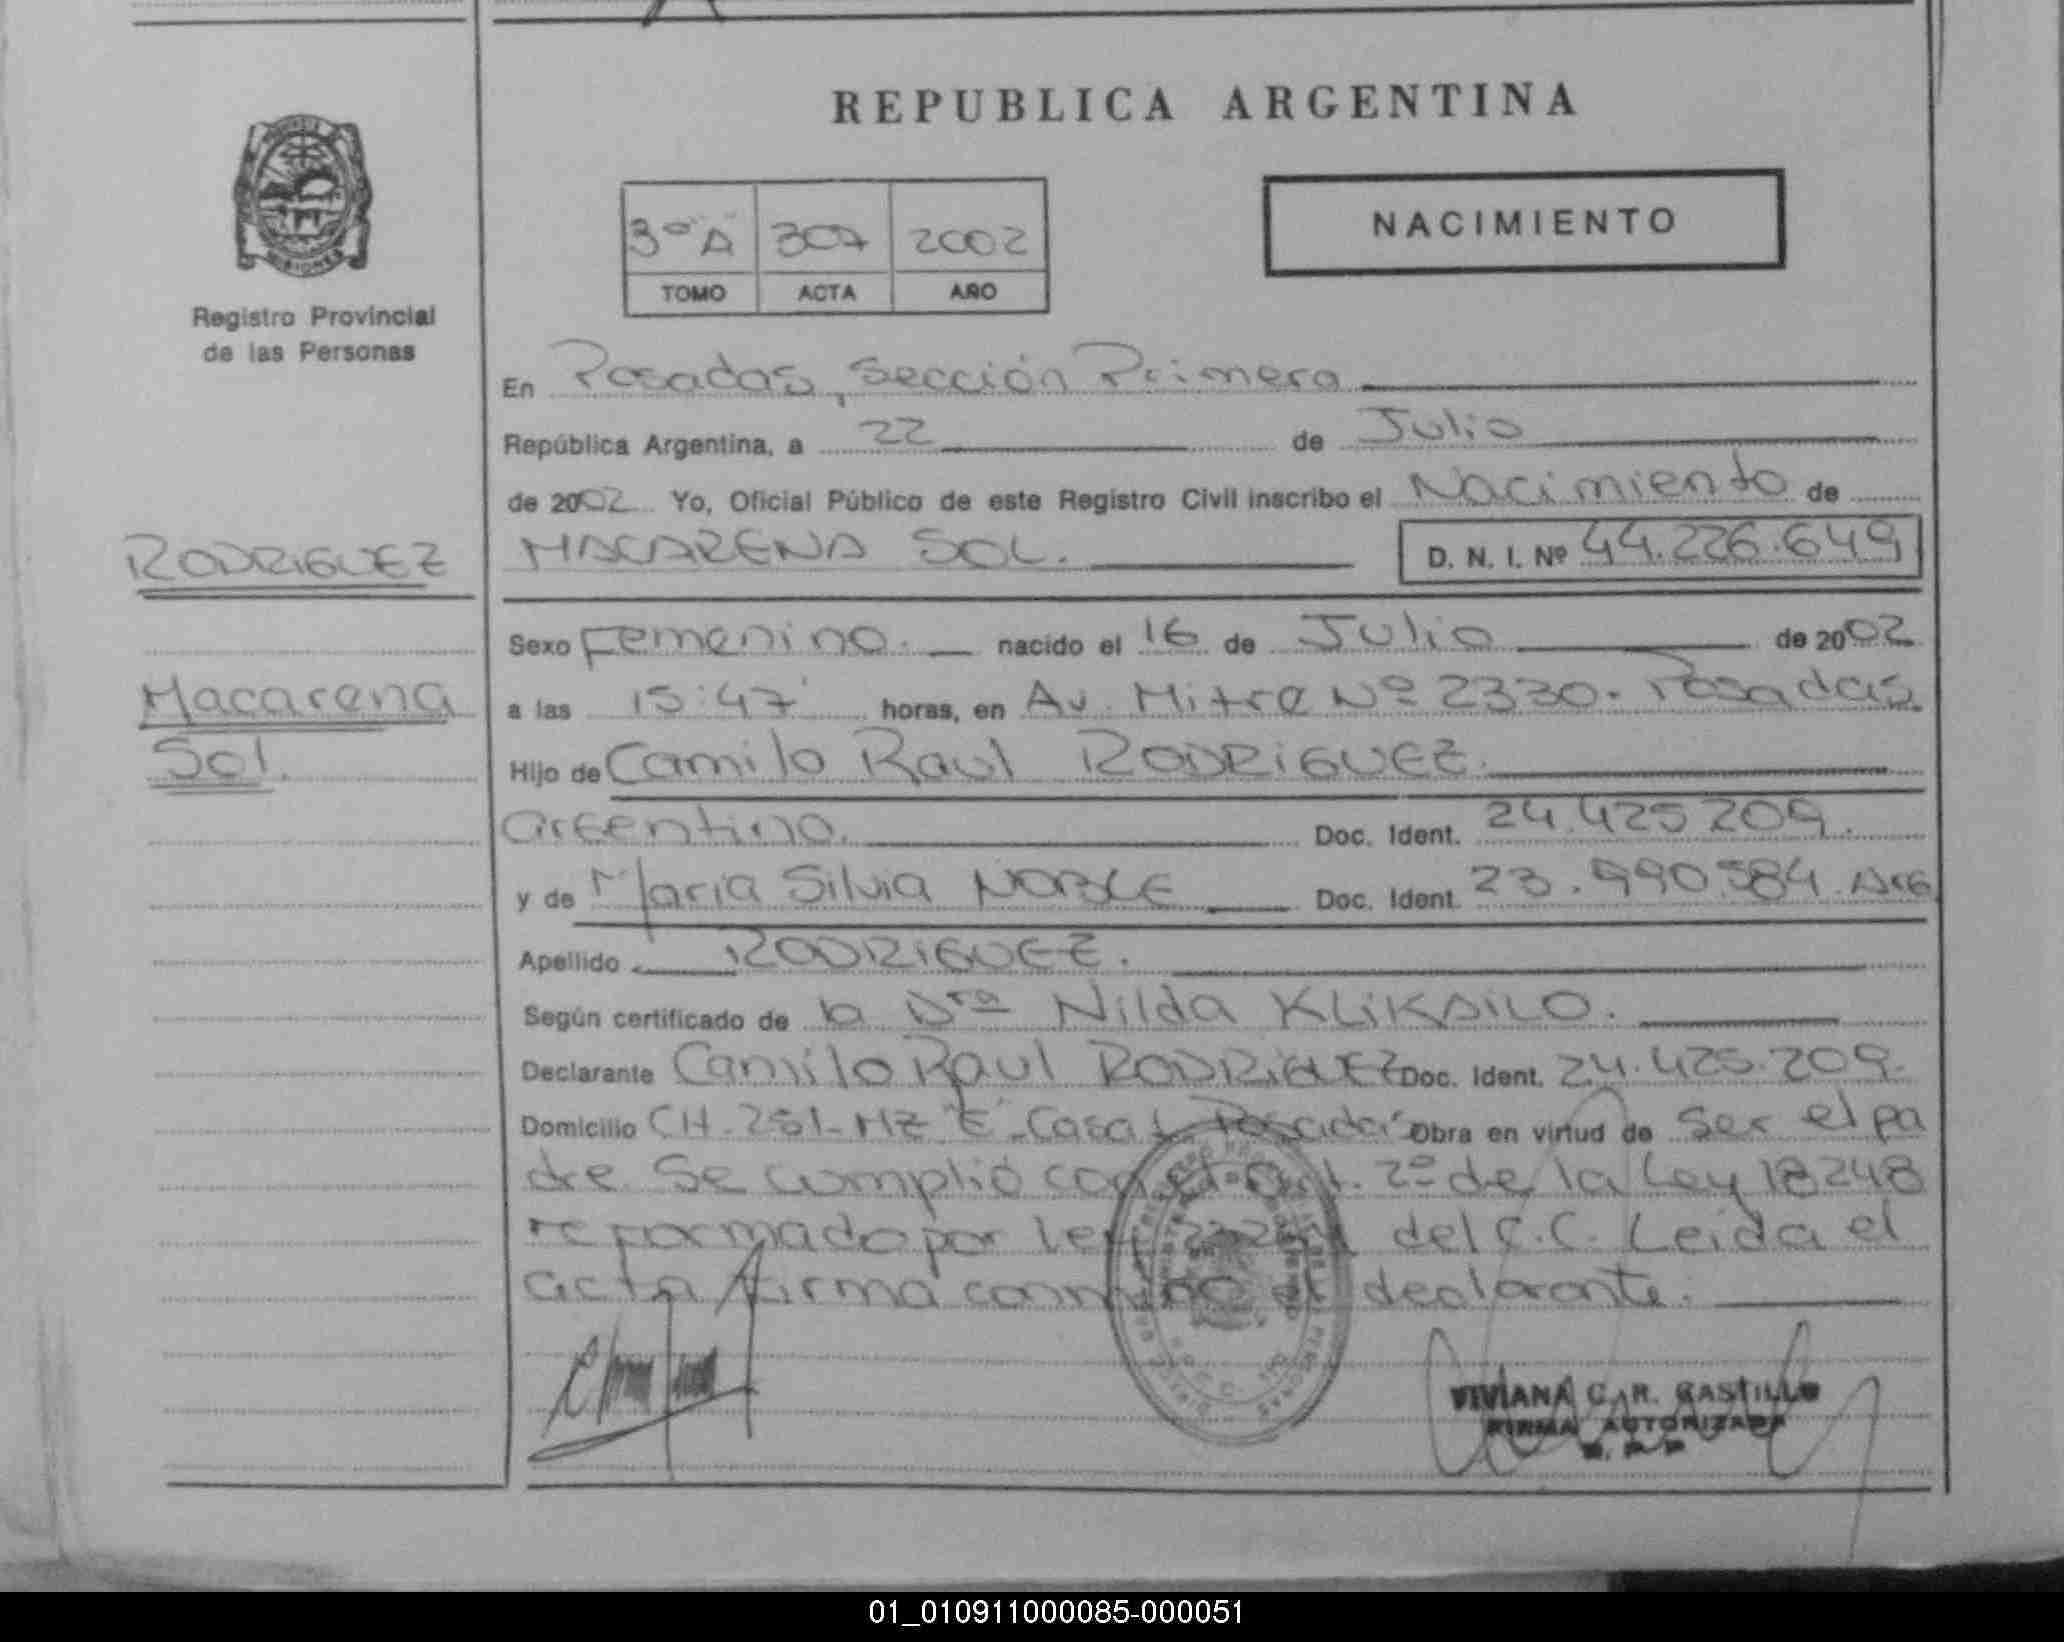 REPUBLICA ARGENTINA
MISIONES
Registro Provincial
de las Personas
3º "A" 307 2002
TOMO ACTA AÑO
NACIMIENTO
En Posadas, Sección Primera
República Argentina, a 22 de Julio
de 2002 Yo, Oficial Público de este Registro Civil inscribo el Nacimiento de
RODRIGUEZ
MACARENA SOL. D. N. I. Nº 44.226.649
Sexo Femenino. nacido el 16 de Julio de 2002
Macarena
Sol.
a las 15:47 horas, en Av. Mitre Nº 2330. Posadas.
Hijo de Camilo Raul RODRIGUEZ.
argentino. Doc. Ident. 24.425.209.
y de Maria Silvia NOBLE Doc. Ident. 23.990.584. Arg
Apellido RODRIGUEZ.
Según certificado de la Dra Nilda KLIKAILO.
Declarante Camilo Raul RODRIGUEZ Doc. Ident. 24.425.209.
Domicilio CH. 251- MZ "E" Casa Posadas Obra en virtud de ser el pa
dre. Se cumplió con el Art. 2º de la Ley 18248
reformado por ley del C.C. Leida el
acta firma conmigo el declarante.
VIVIANA C. R. CASTILLO
FIRMA AUTORIZADA
R. P. P.
01_010911000085-000051